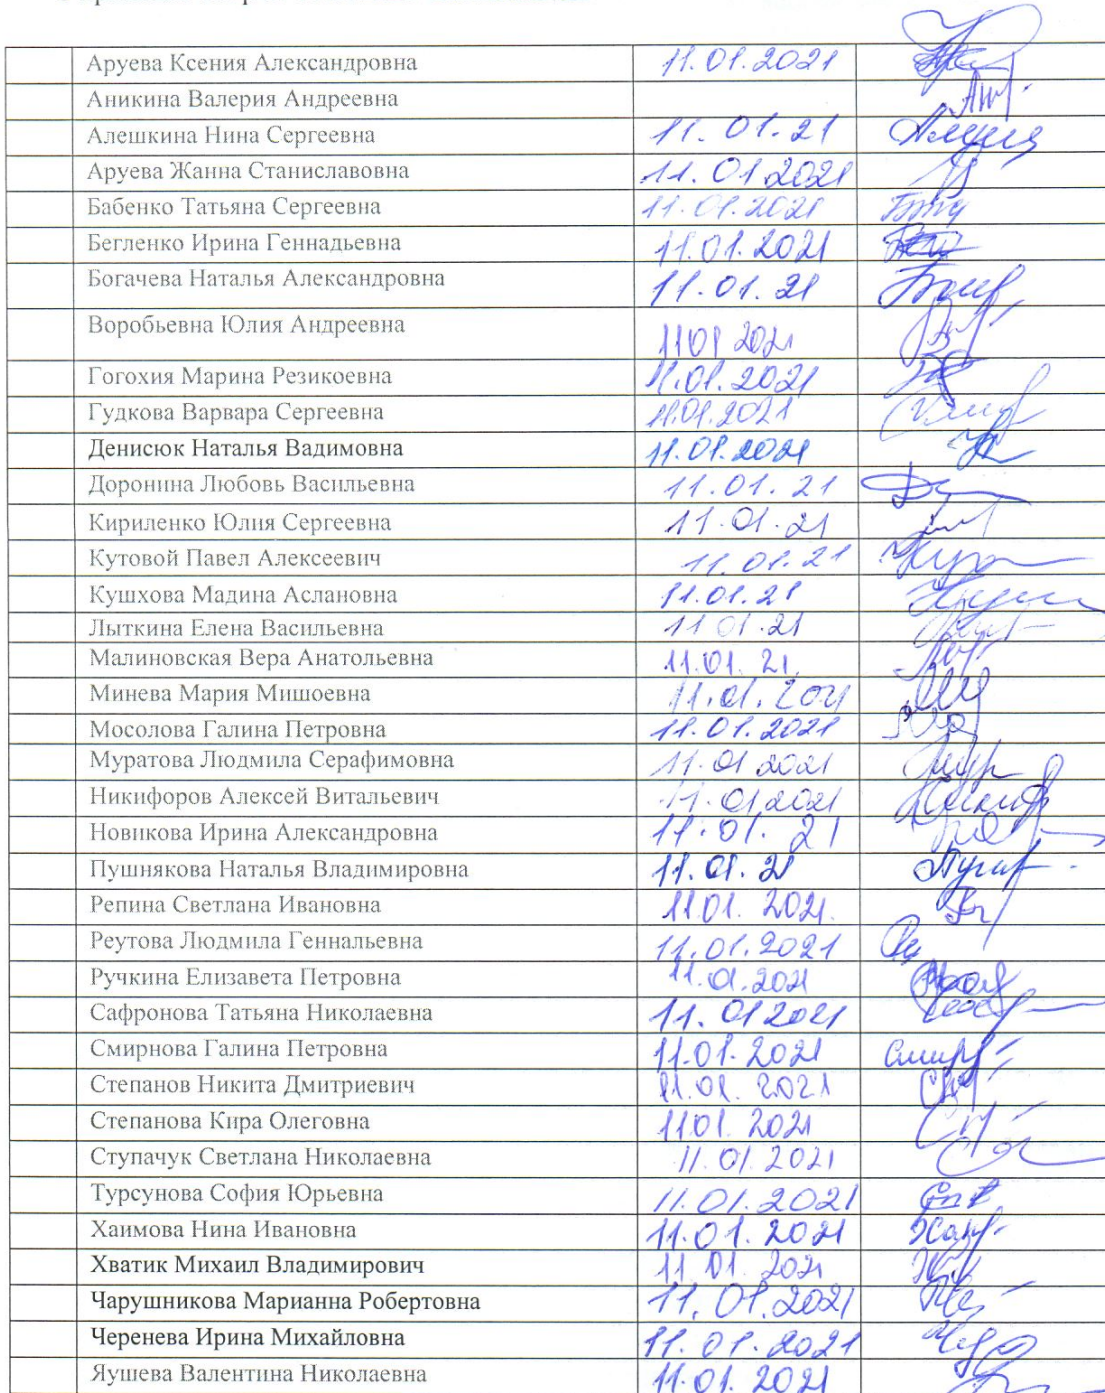 Аруева Ксения Александровна 11.01.2021
Аникина Валерия Андреевна
Алешкина Нина Сергеевна 11.01.21
Аруева Жанна Станиславовна 11.01.2021
Бабенко Татьяна Сергеевна 11.01.2021
Бегленко Ирина Геннадьевна 11.01.2021
Богачева Наталья Александровна 11.01.21
Воробьевна Юлия Андреевна 1101 2021
Гогохия Марина Резикоевна 11.01.2021
Гудкова Варвара Сергеевна 11.01.2021
Денисюк Наталья Вадимовна 11.01.2021
Доронина Любовь Васильевна 11.01.21
Кириленко Юлия Сергеевна 11.01.21
Кутовой Павел Алексеевич 11.01.21
Кушхова Мадина Аслановна 11.01.21
Лыткина Елена Васильевна 11 01.21
Малиновская Вера Анатольевна 11.01.21.
Минева Мария Мишоевна
Мосолова Галина Петровна 11.01.2021
Муратова Людмила Серафимовна 11.01 2021
Никифоров Алексей Витальевич 11.01.2021
Новикова Ирина Александровна 11.01.21
Пушнякова Наталья Владимировна 11.01.21
Репина Светлана Ивановна 11.01.2021.
Реутова Людмила Геннальевна 11.01.2021
Ручкина Елизавета Петровна 11.01.2021
Сафронова Татьяна Николаевна 11.01 2021
Смирнова Галина Петровна 11.01.2021
Степанов Никита Дмитриевич 11.01.2021
Степанова Кира Олеговна 1101.2021
Ступачук Светлана Николаевна 11.01.2021
Турсунова София Юрьевна 11.01.2021
Хаимова Нина Ивановна 11.01.2021
Хватик Михаил Владимирович 11 01.2021
Чарушникова Марианна Робертовна 11.01.2021
Черенева Ирина Михайловна 11.01.2021
Яушева Валентина Николаевна 11.01.2021